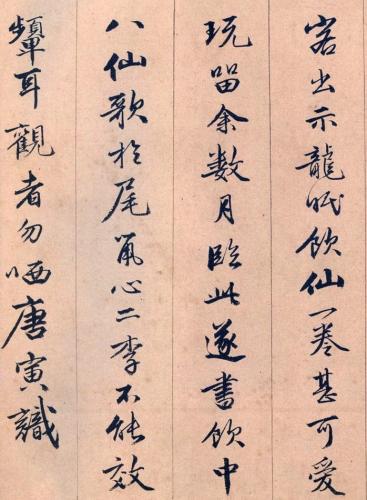 客出示龍眠飲仙一卷甚可愛
玩留余數月臨此遂書飲中
八仙歌於尾心二李不能效
顰耳觀者勿哂唐寅識